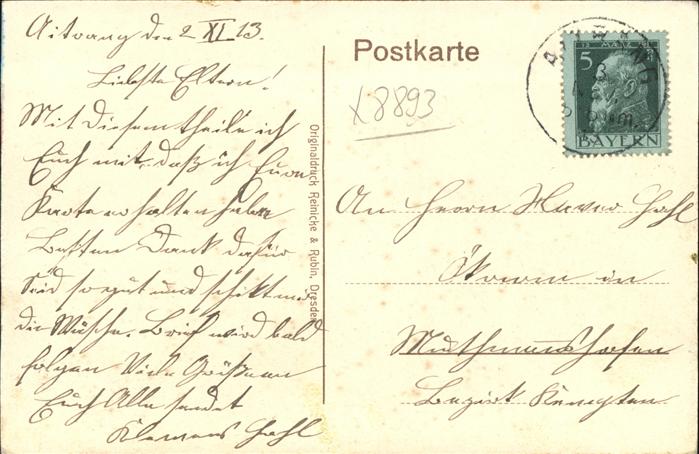 Aitrang den 2 XI. 13.
Liebste Eltern!
Mit diesem theile ich
Euch mit, daß ich Eure
Karte erhalten habe
Besten Dank dafür
Seid so gut und schikt mir
die Wäsche. Brief wird bald
folgen Viele Grüße an
Euch Alle sendet
Klemens Hahl
Originaldruck Reinicke & Rubin, Dresden
Postkarte
X8893
5
BAYERN
An Herrn Xaver
Ökonom in
Muthmannshofen
Bezirk Kempten